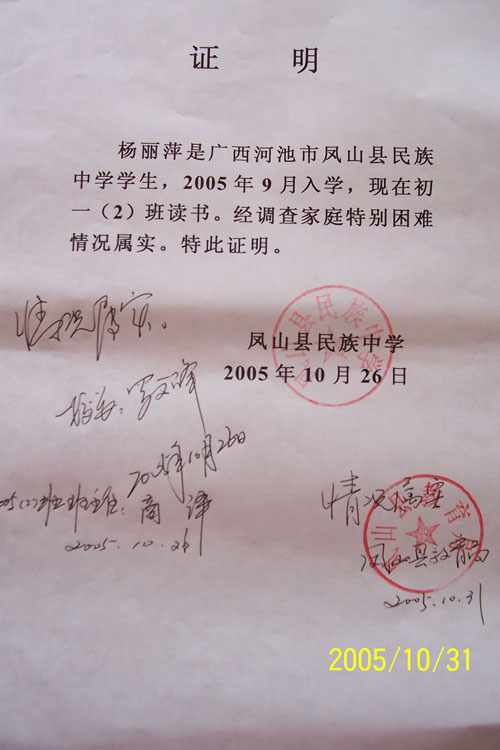 证 明
杨丽萍是广西河池市凤山县民族
中学学生，2005年9月入学，现在初
一（2）班读书。经调查家庭特别困难
情况属实。特此证明。
情况属实。
凤山县民族中学
2005年10月26日
2005年10月26日
05(2)班班主任：
2005.10.26
情况属实
凤山县教育局
2005.10.31
2005/10/31